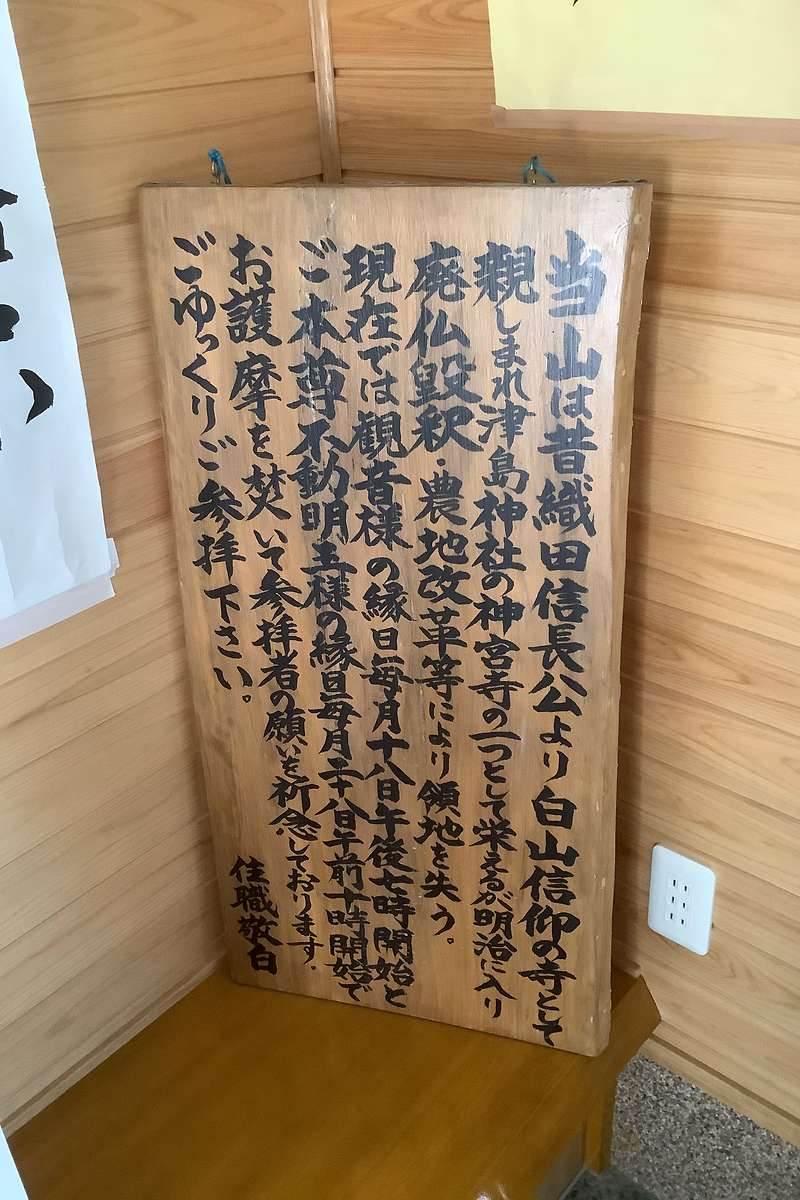 当山は昔、織田信長公より白山信仰の寺として
親しまれ津島神社の神宮寺の一つとして栄えるが明治に入り
廃仏毀釈・農地改革等により領地を失う。
現在では観音様の縁日毎月十八日午後七時開始と
ご本尊不動明王様の縁日毎月二十八日午前十時開始で
お護摩を焚いて参拝者の願いを祈念しております。
ごゆっくりご参拝下さい。
住職敬白